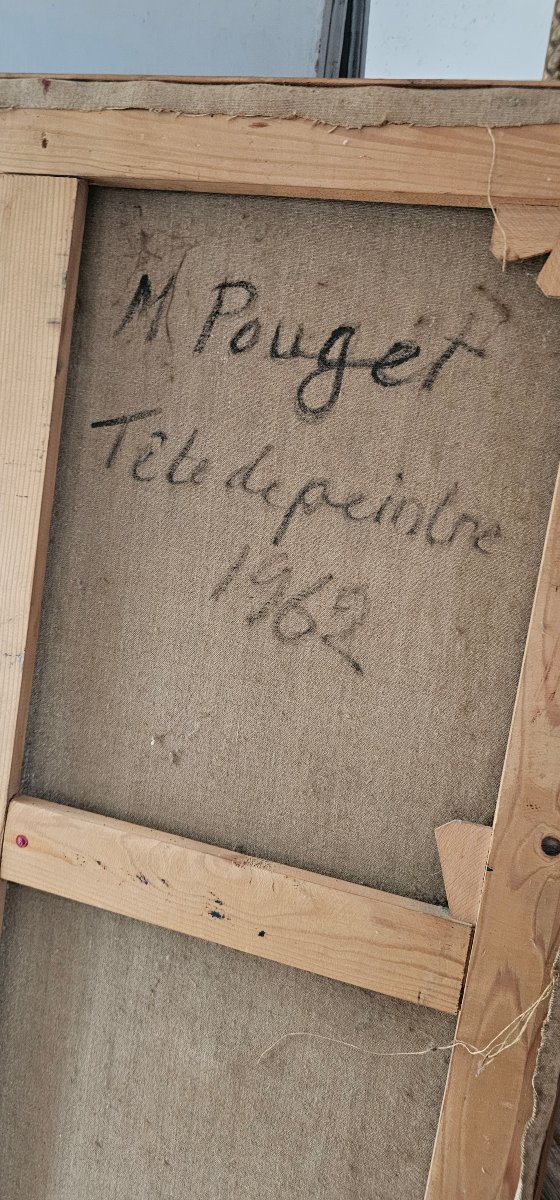 M Pouget
Tête de peintre
1962